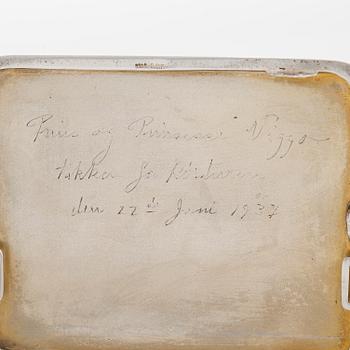 Prins og Prinsesse Viggo
takker for Kørluren
den 22de Juni 1937